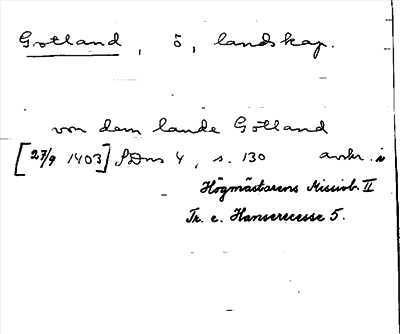 Gotland, ö, landskap.
von dem lande Gotland
[27/9 1403] SDns 4, s. 130 avskr. i
Högmästarens Missivb. II
Tr. e. Hanserecesse 5.